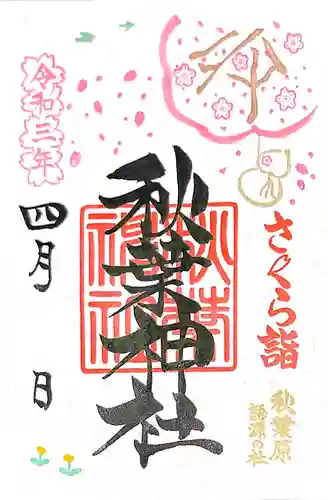 さくら詣
秋葉原
語源の社
秋葉神社
令和三年
四月
日